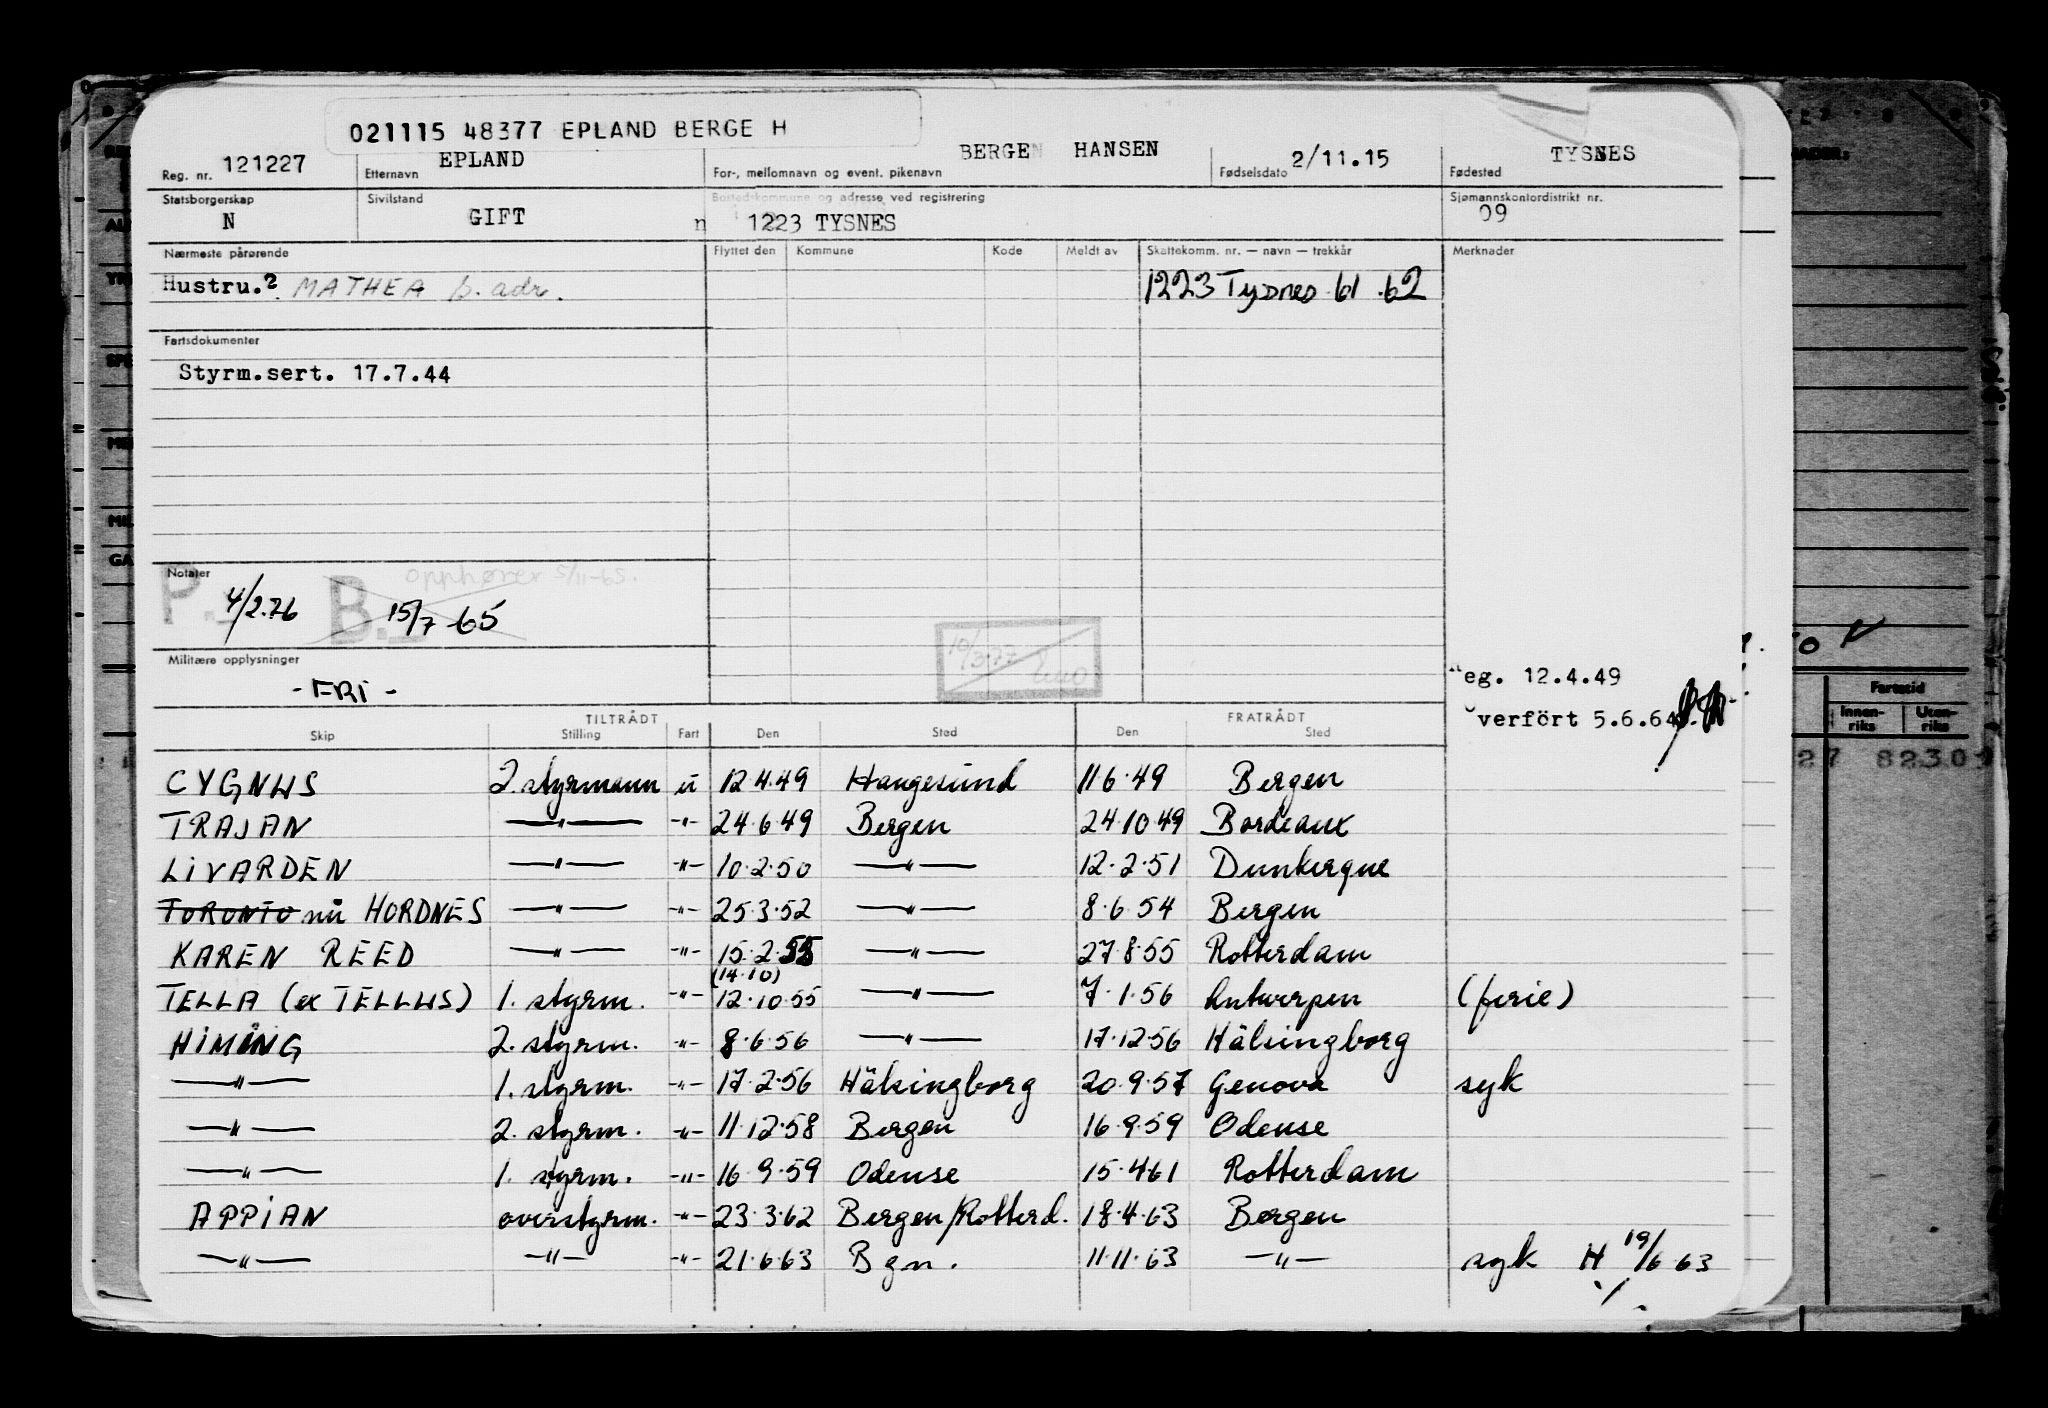 021115 48377 EPLAND BERGE H
Reg. nr. 121227 Etternavn EPLAND For-, mellomnavn og event. pikenavn BERGEN HANSEN Fødselsdato 2/11.15 Fødested TYSNES
Statsborgerskap N Sivilstand GIFT Bostedskommune og adresse ved registrering n 1223 TYSNES Sjømannskontordistrikt nr. 09
Nærmeste pårørende Flyttet den Kommune Kode Meldt av Skattekomm. nr. — navn — trekkår Merknader
Hustru.? MATHEA s. adr. 1223 Tysnes 61 .62
Fartsdokumenter
Styrm.sert. 17.7.44
Notater opphører 5/11-65.
P. 4/2.76 B. 15/7 65
10/3.77
Militære opplysninger
- FRI -
eg. 12.4.49
verfört 5.6.64
TILTRÅDT FRATRÅDT
Skip Stilling Fart Den Sted Den Sted
CYGNUS 2. styrmann u 12.4.49 Haugesund 11.6.49 Bergen
TRAJAN —"— -"- 24.6.49 Bergen 24.10.49 Bordeaux
LIVARDEN —"— -"- 10.2.50 —"— 12.2.51 Dunkerque
TORONTO nu HORDNES —"— -"- 25.3.52 —"— 8.6.54 Bergen
KAREN REED —"— -"- 15.2.55 —"— 27.8.55 Rotterdam
(14.10)
TELLA (ex TELLUS) 1. styrm. -"- 12.10.55 —"— 7.1.56 Antwerpen (ferie)
HIMING 2. styrm. -"- 8.6.56 —"— 17.12.56 Hälsingborg
—"— 1. styrm. -"- 17.2.56 Hälsingborg 20.9.57 Genova syk
—"— 2. styrm. -"- 11.12.58 Bergen 16.9.59 Odense
—"— 1. styrm. -"- 16.9.59 Odense 15.4.61 Rotterdam
APPIAN overstyrm. -"- 23.3.62 Bergen/Rotterd. 18.4.63 Bergen
—"— —"— -"- 21.6.63 Bgn. 11.11.63 —"— syk H 19/6 63
Fartstid
Innen-riks Uten-riks
27 82309